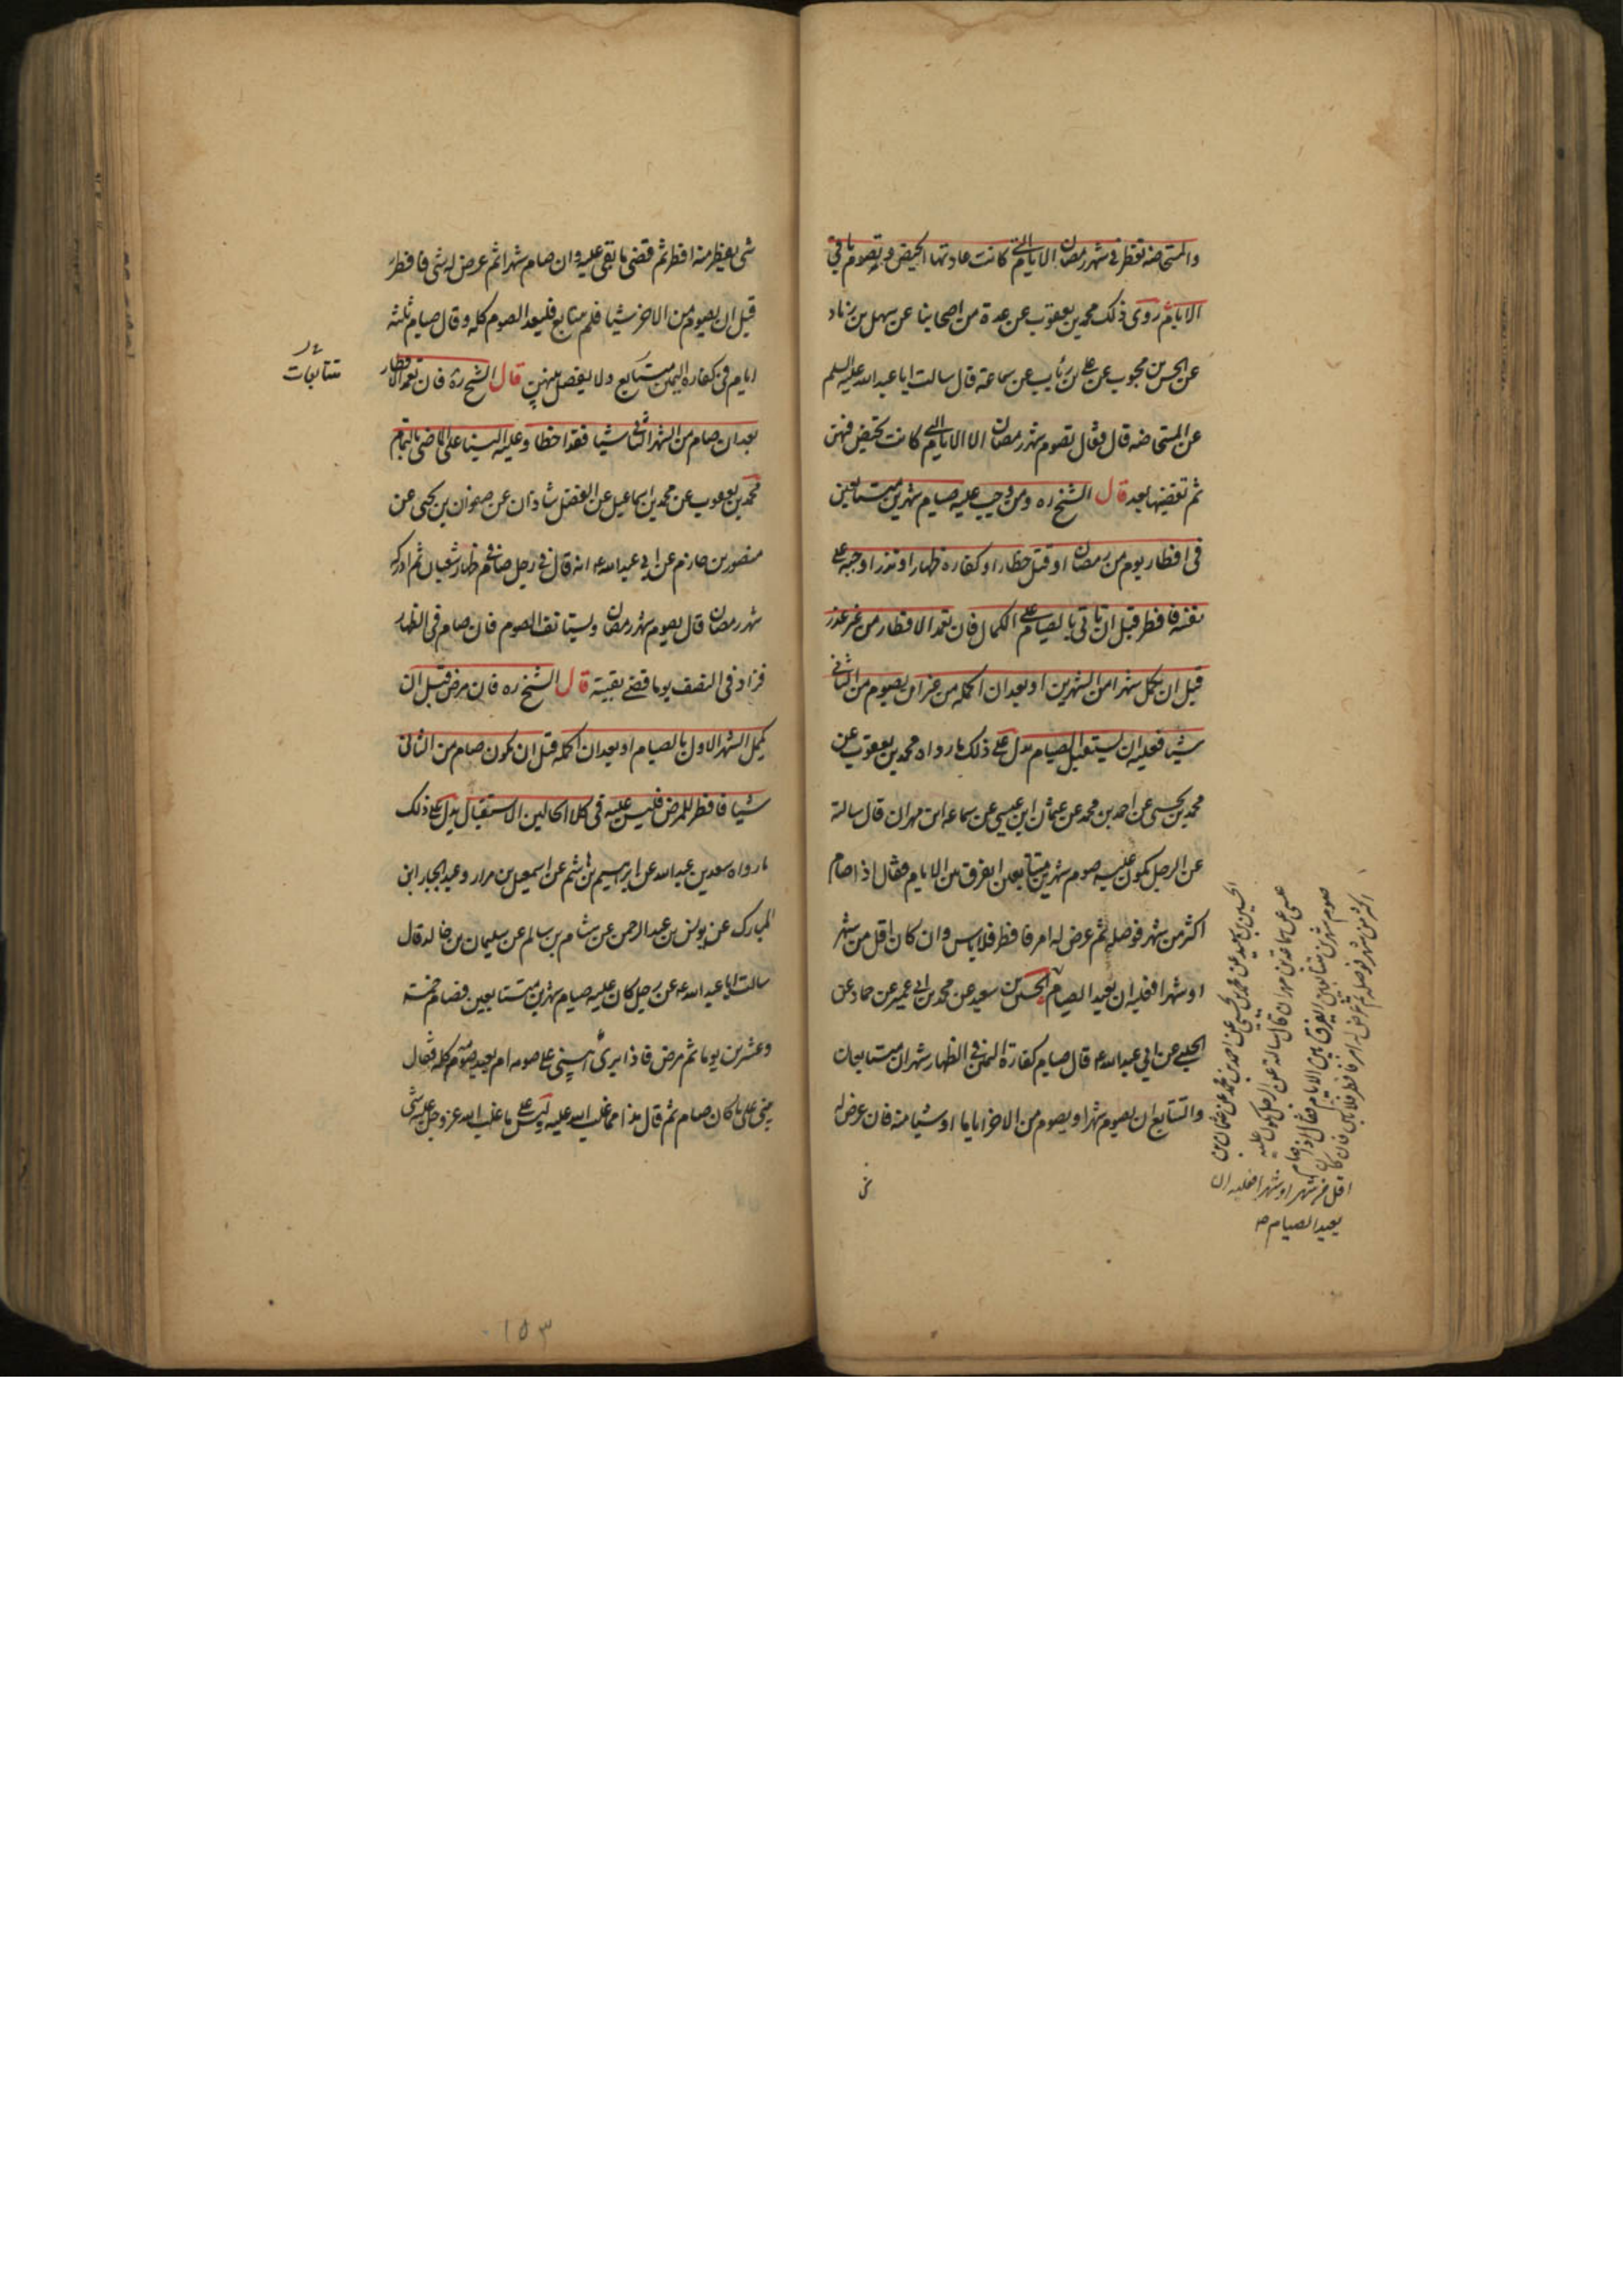 والمستحاضة تفطر فى شهر رمضان الايام التى كانت عادتها الحيض فيه وتصوم باقى
الايام روى ذلك محمد بن يعقوب عن عدة من اصحابنا عن سهل بن زياد
عن الحسن بن محبوب عن على بن رئاب عن سماعة قال سالت ابا عبد الله عليه السلم
عن المستحاضه قال فقال تصوم شهر رمضان الا الايام التى كانت تحيض فيهن
ثم تقضيها بعد قال الشيخ ره ومن وجب عليه صيام شهرين متتابعين
فى افطار يوم من رمضان او قتل خطا او كفاره ظهار او نذر اوجبه على
نفسه فافطر قبل ان ياتى بالصيام على الكمال فان تعمد الافطار من غير عذر
قبل ان يكمل شهرا من الشهرين او بعد ان اكمله من غير ان يصوم من الثانى
شيا فعليه ان يستقبل الصيام يدل على ذلك ما رواه محمد بن يعقوب عن
محمد بن يحيى عن احمد بن محمد عن عثمان ابن عيسى عن سماعه ابن مهران قال سالته
عن الرجل يكون عليه صوم شهرين متتابعين ايفرق بين الايام فقال اذا صام
اكثر من شهر فوصله ثم عرض له امر فافطر فلا باس وان كان اقل من شهر
او شهرا فعليه ان يعيد الصيام الحسين بن سعيد عن محمد بن ابى عمير عن حماد عن
الحلبى عن ابى عبد الله ع قال صيام كفارة اليمين فى الظهار شهران متتابعان
والتتابع ان يصوم شهرا ويصوم من الاخر اياما او شيئا منه فان عرض له
الحسين بن سعيد عن محمد بن يحيى عن احمد بن محمد عن عثمان بن
عيسى عن سماعة بن مهران قال سالته عن الرجل يكون عليه
صوم شهرين متتابعين ايفرق بين الايام فقال اذا صام
اكثر من شهر فوصله ثم عرض له امر فافطر فلا باس فان كان
اقل من شهر او شهرا فعليه ان
يعيد الصيام
شى يفطر منه افطر ثم قضى ما بقى عليه وان صام شهرا ثم عرض له شى فافطر
قبل ان يصوم من الاخر شيا فلم يتابع فليعد الصوم كله وقال صيام ثلثه
ايام فى كفاره اليمين متتابع ولا يفصل بينهن قال الشيخ ره فان تعمد الافطار
متتابعات
بعد ان صام من الشهر الثانى شيا فقد اخطا وعليه البنا على الماضى بالتمام
محمد بن يعقوب عن محمد بن اسماعيل عن الفضل شاذان عن صفوان بن يحيى عن
منصور بن حازم عن ابى عبد الله ع انه قال فى رجل صام فى ظهار شعبان ثم ادركه
شهر رمضان قال يصوم شهر رمضان ويستانف الصوم فان صام فى الظهار
فزاد فى النصف يوما قضى بقيته قال الشيخ ره فان مرض قبل ان
يكمل الشهر الاول بالصيام او بعد ان اكمله قبل ان يكون صام من الثانى
شيا فافطر للمرض فليس عليه فى كلا الحالين الاستقبال يدل على ذلك
ما رواه سعد بن عبد الله عن ابرهيم بن هاشم عن اسمعيل بن مرار وعبد الجبار ابن
المبارك عن يونس بن عبد الرحمن عن هشام بن سالم عن سليمان بن خالد قال
سالت ابا عبد الله ع عن رجل كان عليه صيام شهرين متتابعين فصام خمسة
وعشرين يوما ثم مرض فاذا برى ايبنى على صومه ام يعيد صومه كله فقال
يبنى على ما كان صام ثم قال هذا مما غلب الله عليه وليس على ما غلب الله عز وجل عليه شى
١٥٣